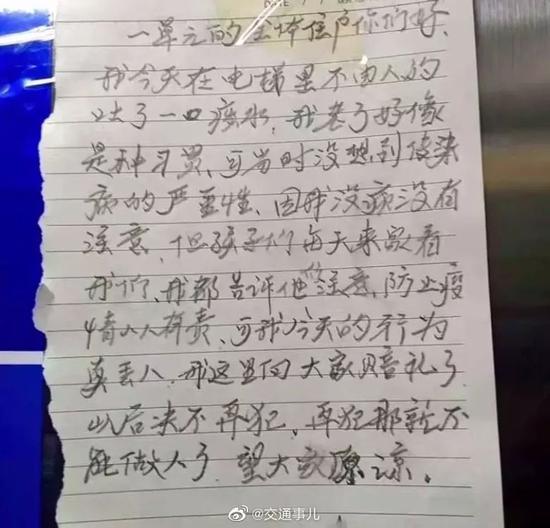 一单元的全体住户你们好.
我今天在电梯里不由人的
吐了一口痰水, 我老了好像
是种习贯, 可当时没想到传染
病的严重性、因我没病没有
注意, 但孩子们每天来家看
我们、我都告诉他们注意, 防止疫
情人人有责、可我今天的行为
真丢人. 我这里向大家赔礼了
以后决不再犯, 再犯那就不
能做人了. 望大家原凉.
@交通事儿